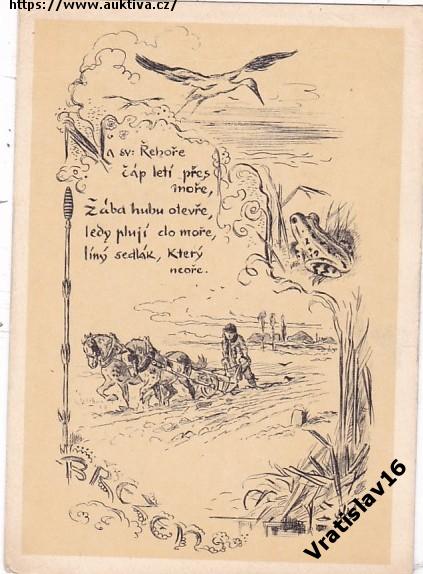 https://www.auktiva.cz/
Na sv: Řehoře
čáp letí přes
moře,
Žába hubu otevře,
ledy plují do moře,
líný sedlák, Který
neoře.
BŘEZEN
Vratislav16